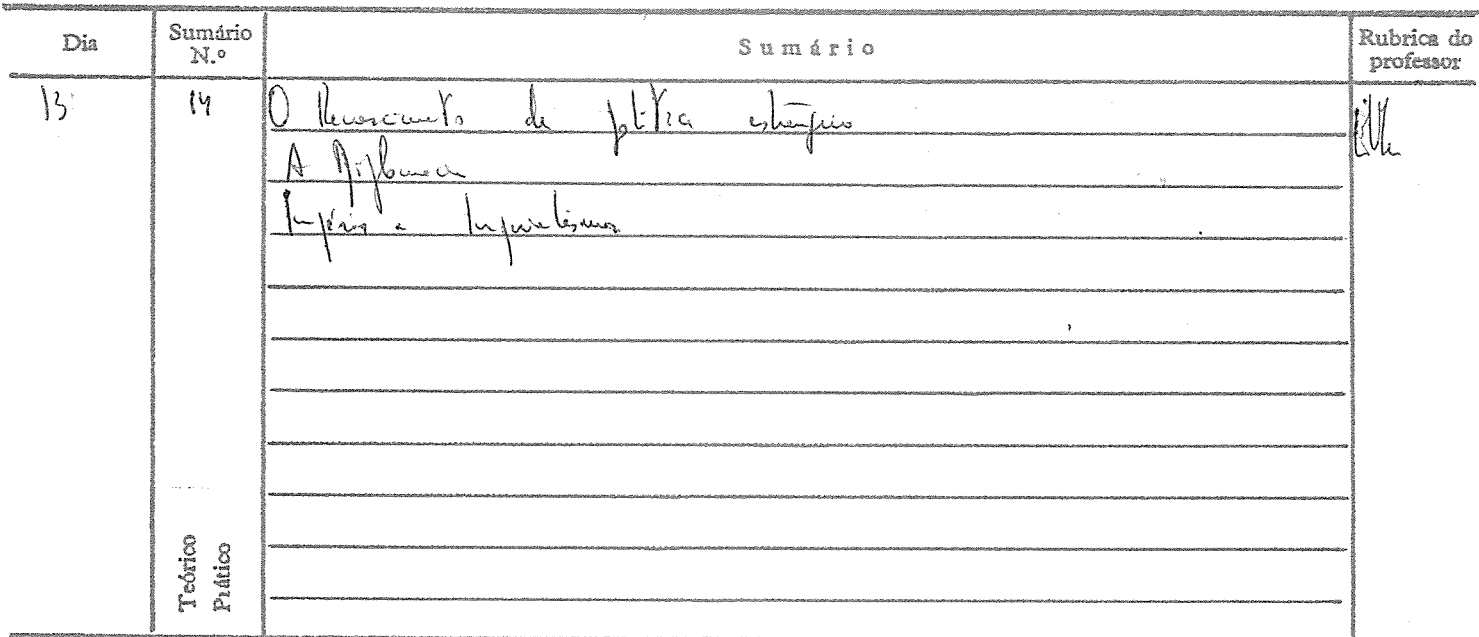 Dia
Sumário N.º
Sumário
Rubrica do professor
13
14
O Renascimento da política
A Diplomacia
Impérios e Imperialismos
Teórico
Prático